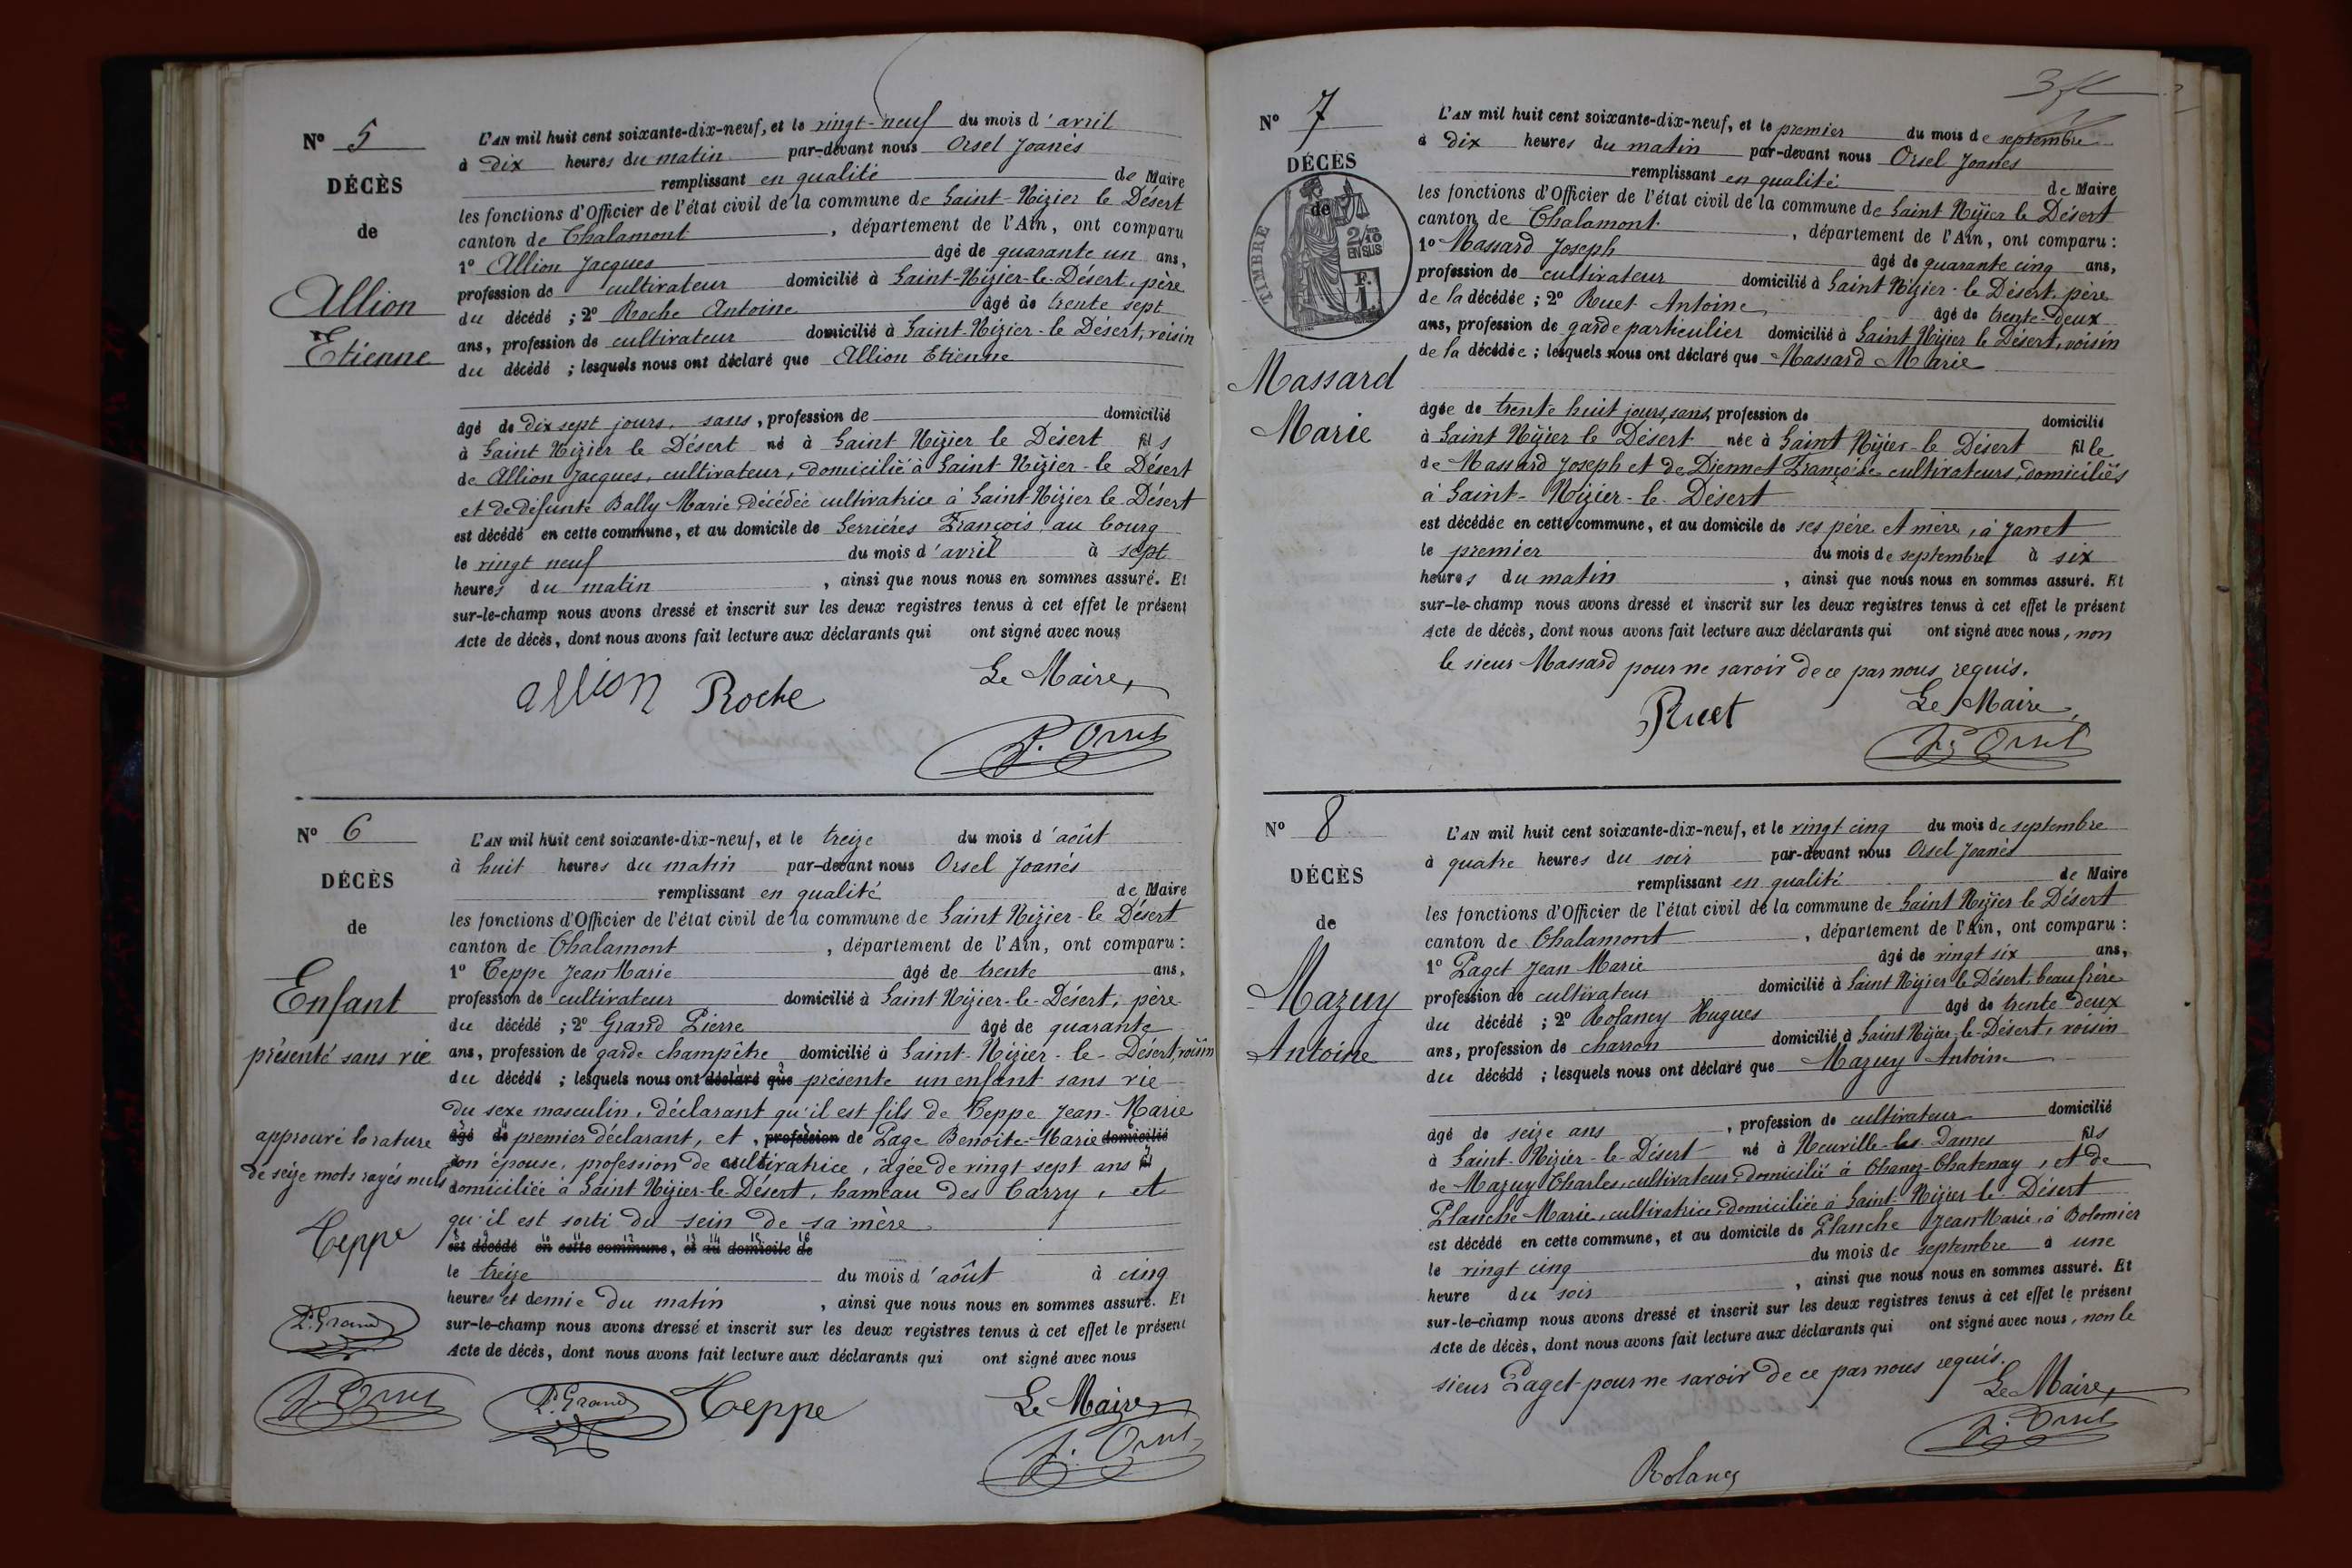 N° 5
DÉCÈS
de
Allion
Etienne
L'AN mil huit cent soixante-dix-neuf, et le vingt-neuf du mois d'avril
à dix heures du matin par-devant nous Orsel Joanès
remplissant en qualité de Maire
les fonctions d'Officier de l'état civil de la commune de Saint-Nizier le Désert
canton de Chalamont, département de l'Ain, ont comparu
1° Allion Jacques âgé de quarante un ans,
profession de cultivateur domicilié à Saint-Nizier-le-Désert, père
du décédé ; 2° Roche Antoine âgé de trente sept
ans, profession de cultivateur domicilié à Saint-Nizier-le Désert, voisin
du décédé ; lesquels nous ont déclaré que Allion Etienne
âgé de dix sept jours, sans, profession de domicilié
à Saint Nizier le Désert né à Saint Nizier le Désert fils
de Allion Jacques, cultivateur, domicilié à Saint Nizier-le Désert
et de défunte Bally Marie décédée cultivatrice à Saint-Nizier le Désert
est décédé en cette commune, et au domicile de Serrières François au bourg
le vingt neuf du mois d'avril à sept
heures du matin, ainsi que nous nous en sommes assuré. Et
sur-le-champ nous avons dressé et inscrit sur les deux registres tenus à cet effet le présent
Acte de décès, dont nous avons fait lecture aux déclarants qui ont signé avec nous
Le Maire,
allion Roche
J. Orsel
N° 6
DÉCÈS
de
Enfant
présenté sans vie
approuvé la rature
de seize mots rayés nuls
Teppe
P. Grand
J. Orsel
L'AN mil huit cent soixante-dix-neuf, et le treize du mois d'août
à huit heures du matin par-devant nous Orsel Joanès
remplissant en qualité de Maire
les fonctions d'Officier de l'état civil de la commune de Saint Nizier-le Désert
canton de Chalamont, département de l'Ain, ont comparu :
1° Teppe Jean Marie âgé de trente ans,
profession de cultivateur domicilié à Saint Nizier-le-Désert, père
du décédé ; 2° Grand Pierre âgé de quarante
ans, profession de garde champêtre domicilié à Saint-Nizier-le-Désert, voisin
du décédé ; lesquels nous ont déclaré que présenté un enfant sans vie
du sexe masculin, déclarant qu'il est fils de Teppe Jean-Marie
âgé de premier déclarant, et, profession de Page Benoite-Marie domicilié
son épouse, profession de cultivatrice, âgée de vingt sept ans fil
domiciliée à Saint Nizier-le Désert, hameau des Carry, et
qu'il est sorti du sein de sa mère
est décédé en cette commune, et au domicile de
le treize du mois d'août à cinq
heures et demie du matin, ainsi que nous nous en sommes assuré. Et
sur-le-champ nous avons dressé et inscrit sur les deux registres tenus à cet effet le présent
Acte de décès, dont nous avons fait lecture aux déclarants qui ont signé avec nous
P. Grand Teppe Le Maire
J. Orsel
N° 7
DÉCÈS
de
TIMBRE
2/10
EN SUS
F.
1.
Massard
Marie
L'AN mil huit cent soixante-dix-neuf, et le premier du mois de septembre
à dix heures du matin par-devant nous Orsel Joanès
remplissant en qualité de Maire
les fonctions d'Officier de l'état civil de la commune de Saint Nizier le Désert
canton de Chalamont, département de l'Ain, ont comparu :
1° Massard Joseph âgé de quarante cinq ans,
profession de cultivateur domicilié à Saint Nizier-le Désert, père
de la décédée ; 2° Ruet Antoine âgé de trente-deux
ans, profession de garde particulier domicilié à Saint Nizier le Désert, voisin
de la décédée ; lesquels nous ont déclaré que Massard Marie
âgée de trente huit jours, sans, profession de domicilié
à Saint Nizier le Désert née à Saint Nizier-le Désert fille
de Massard Joseph et de Diennet Françoise cultivateurs, domiciliés
à Saint-Nizier-le-Désert
est décédée en cette commune, et au domicile de ses père et mère, à Janet
le premier du mois de septembre à six
heures du matin, ainsi que nous nous en sommes assuré. Et
sur-le-champ nous avons dressé et inscrit sur les deux registres tenus à cet effet le présent
Acte de décès, dont nous avons fait lecture aux déclarants qui ont signé avec nous, non
le sieur Massard pour ne savoir de ce par nous requis.
Ruet Le Maire,
J. Orsel
N° 8
DÉCÈS
de
Mazuy
Antoine
L'AN mil huit cent soixante-dix-neuf, et le vingt cinq du mois de septembre
à quatre heures du soir par-devant nous Orsel Joanès
remplissant en qualité de Maire
les fonctions d'Officier de l'état civil de la commune de Saint Nizier le Désert
canton de Chalamont, département de l'Ain, ont comparu :
1° Paget Jean Marie âgé de vingt six ans,
profession de cultivateur domicilié à Saint Nizier le Désert, beau frère
du décédé ; 2° Rolancy Hugues âgé de trente deux
ans, profession de charron domicilié à Saint Nizier-le-Désert, voisin
du décédé ; lesquels nous ont déclaré que Mazuy Antoine
âgé de seize ans, profession de cultivateur domicilié
à Saint-Nizier-le-Désert né à Neuville-les-Dames fils
de Mazuy Charles, cultivateur, domicilié à Chanoz-Chatenay, et de
Planche Marie, cultivatrice, domiciliée à Saint-Nizier le Désert
est décédé en cette commune, et au domicile de Planche Jean Marie, à Bolomier
le vingt cinq du mois de septembre à une
heure du soir, ainsi que nous nous en sommes assuré. Et
sur-le-champ nous avons dressé et inscrit sur les deux registres tenus à cet effet le présent
Acte de décès, dont nous avons fait lecture aux déclarants qui ont signé avec nous, non le
sieur Paget pour ne savoir de ce par nous requis.
Le Maire,
J. Orsel
Rolancy